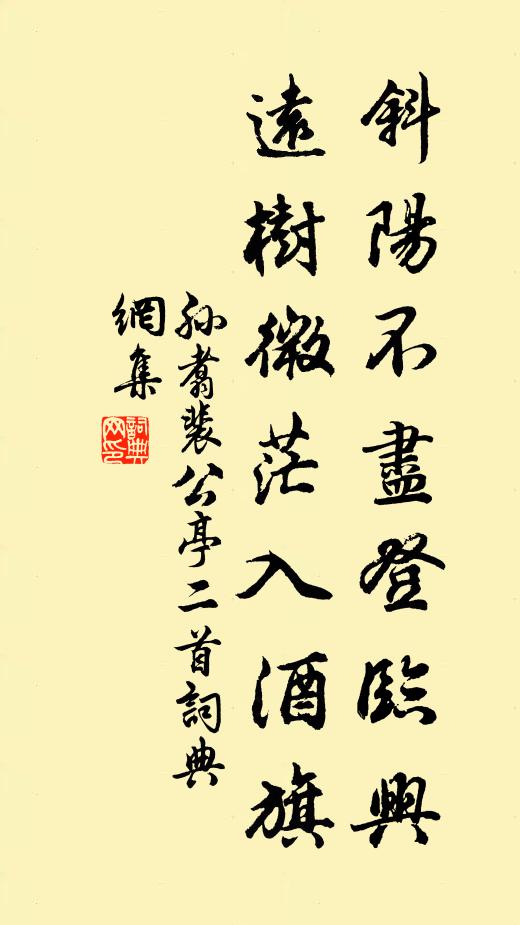 斜陽不盡登臨興
遠樹微茫入酒旗
孫翥裴公亭二首詞典
網集
詞典
网印